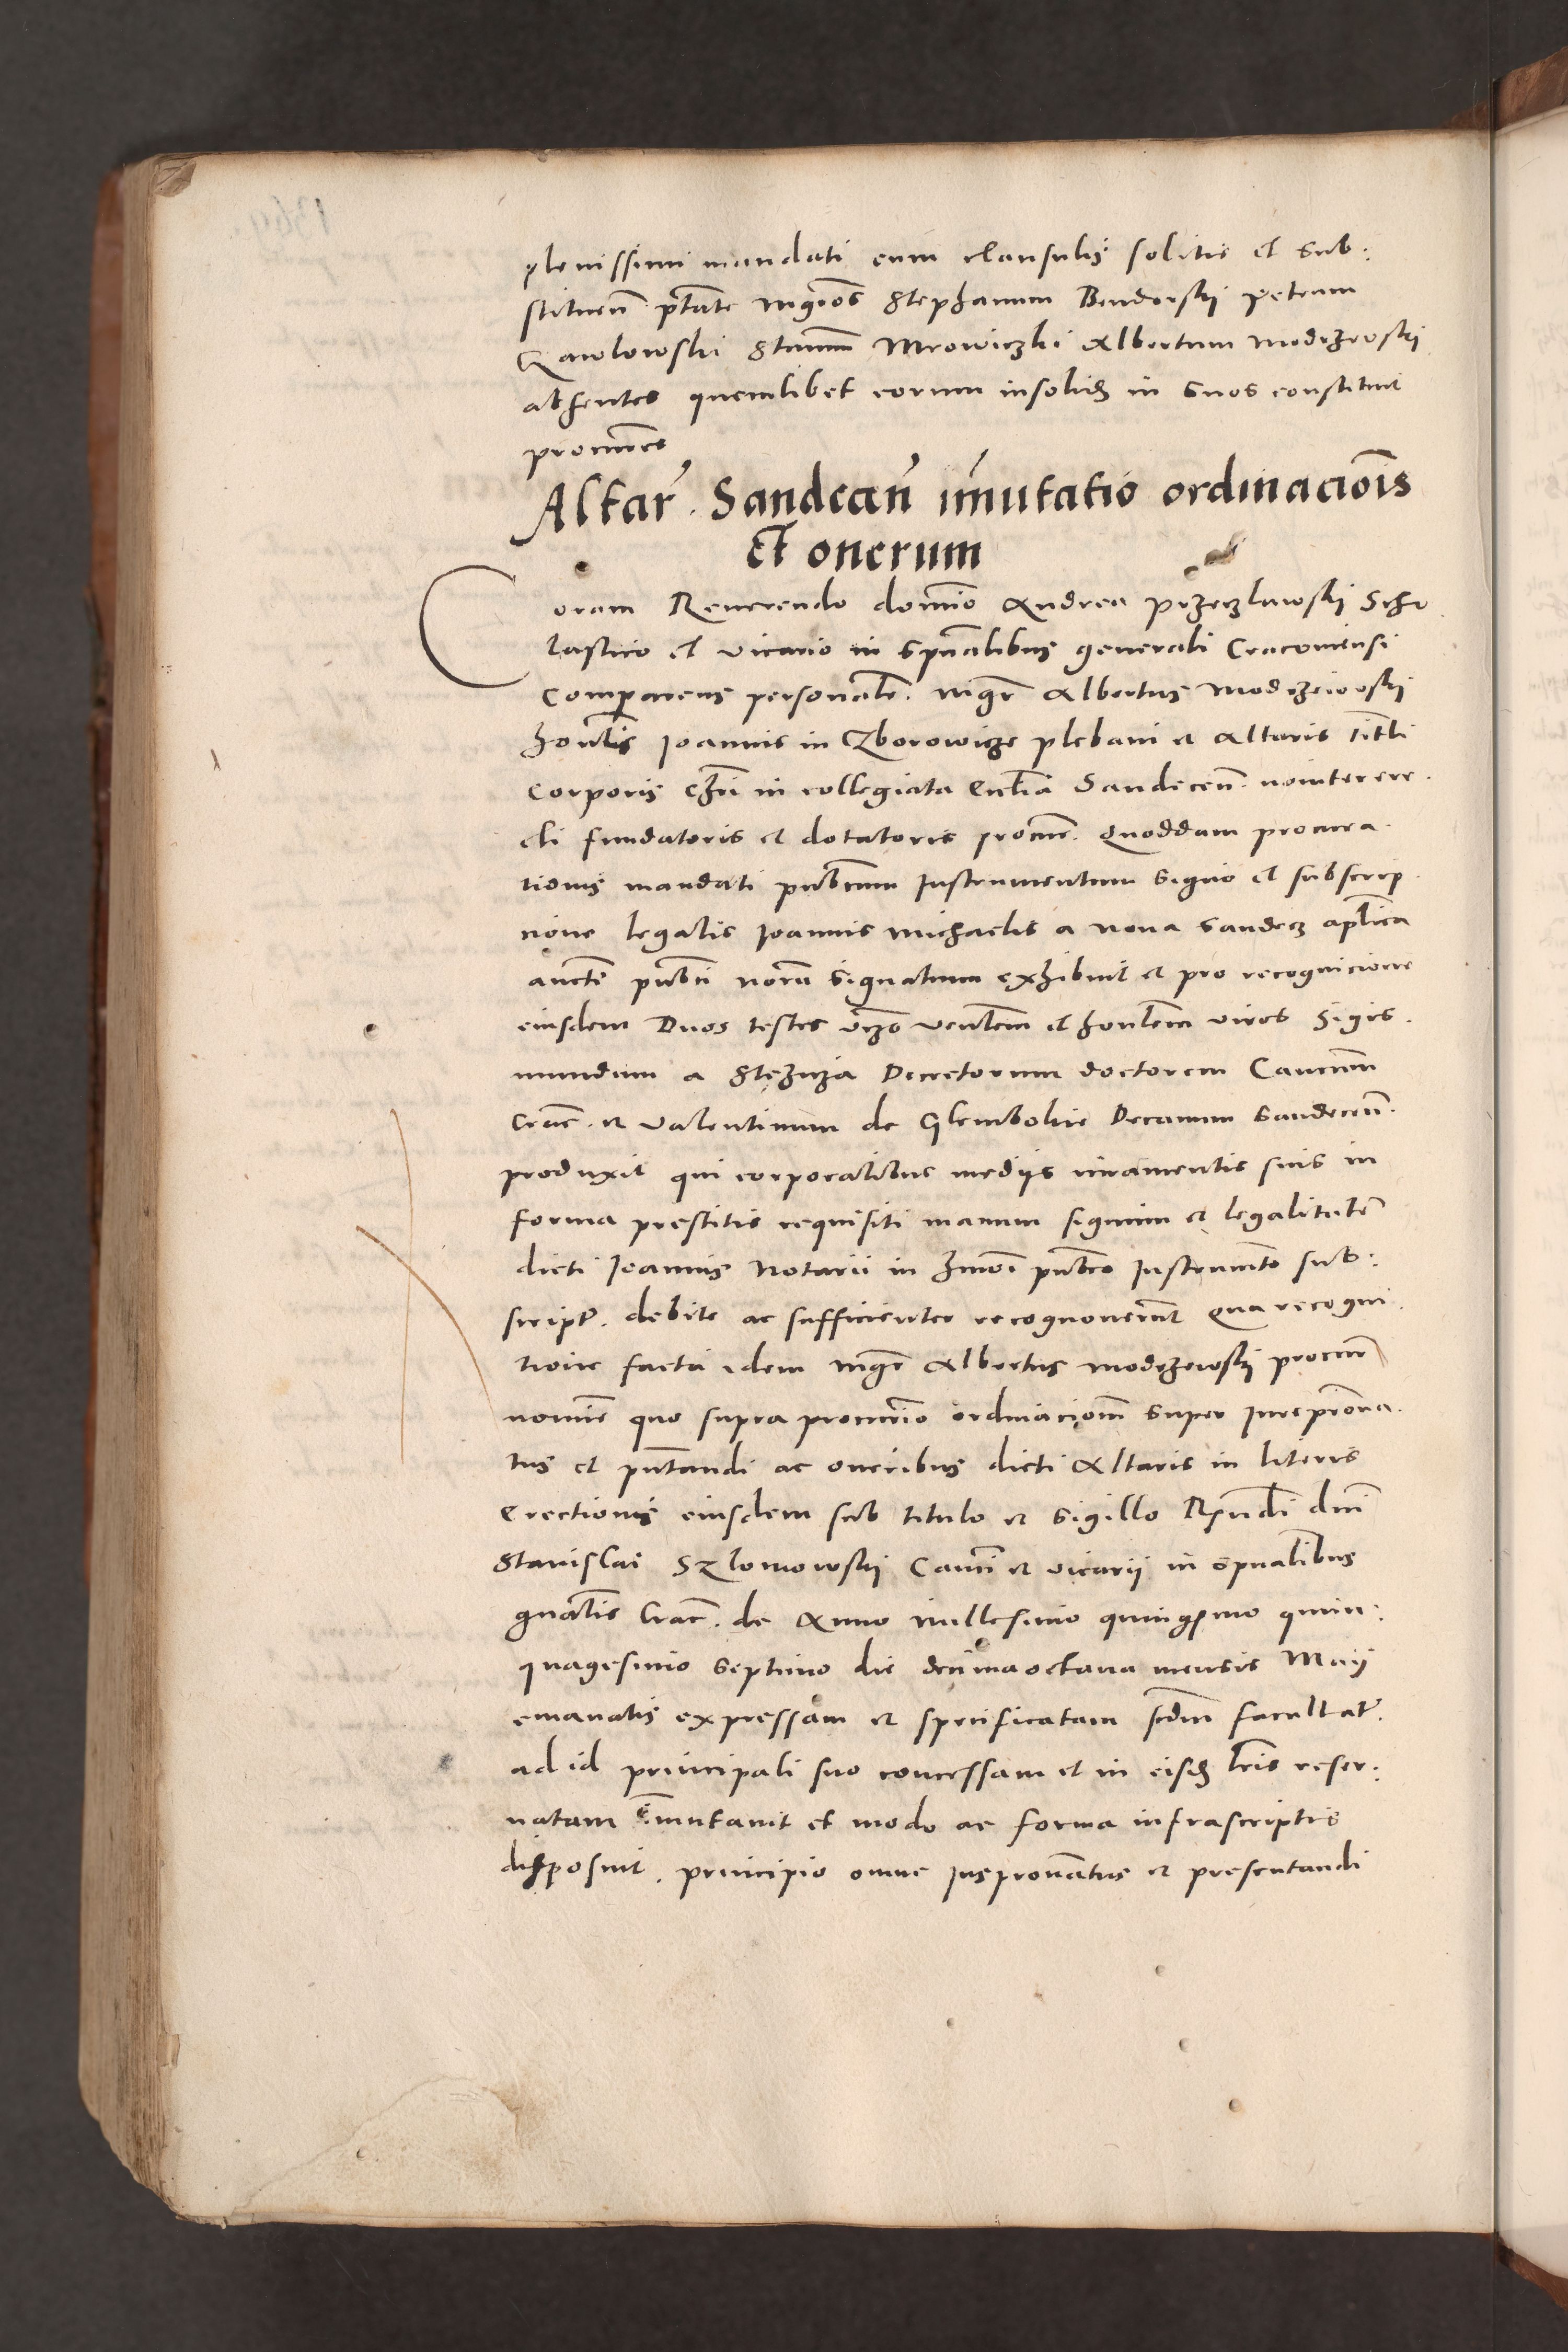 plenissimi mandati cum clausulis solitis et sub:
stituen̄ ptāte mgr̄os Stephanum Bendoński Petrum
Gawlowski Stanm̄ Mrowiczki Albertum Modrzewskj
absentes quemlibet eorum insolid in suos constituit
procur̄es
Altar̄. Sandecan̄ im̄utatio ordinacio͞is
et onerum
Coram Reuerendo domīo Andrea Przerzlawskj Scho
lastico et vicario in spūalibus generali Cracouiensi
Comparens personalr̄. mgr̄ Albertus Modrzewskj
honlis̄ Joannis in Czborowicze plebani et Altaris titli
Corporis Chri̅ in collegiata Eccl̅ia Sandecen̄. nouiter ere.
cti fundatoris et dotatoris procur̄. quoddam procura.
tionis mandati pub̄cum Instrumentum signo et subscrip.
tione legalis Joannis Michaelis a Noua Sandecz aplica̅
auct̄e pub̄ci nota̅ri signatum exhibuit et pro recognicione
eiusdem Duos testes vz̄ ven̄lem et honlem̄ viros Sigis.
mundum a Stezicza Decretorum doctorem Canc̅um
Crac̄. et Valentinum de Glembokie Decanum Sandecen̄.
produxit qui corporalibus mediis iuramentis suis in
forma prestitis requisiti manum signum et legalitate̅
dicti Joannis Notarii in hmo̅i pub̄co Instrumto̅ sub:
script̄. debite ac sufficienter recognouerun̄t Qua recogni.
tione facta idem mgr̄ Albertus Modrzewskj procur̄
nomīe quo supra procur̄io ordinaciom̄ super Jurepr̄ona.
tus et pn̄tandi ac oneribus dicti Altaris in literis
erectionis eiusdem sub titulo et sigillo Rn̄di dn̄i
Stanislai Szlomowskj Can̄ci et vicarij in spualibus
gn̄alis Crac̄. de Anno Millesimo quing͞mo quin:
quagesimo septimo die decimaoctaua mensis Maij
emanatis expressam et specificatam scdm̄ facultat̄.
ad id principali suo concessam et in eisd lrī̄s reser:
uatam im̄utauit et modo ac forma infrascriptis
disposuit. principio omne Juspronatus̄ et presentandi